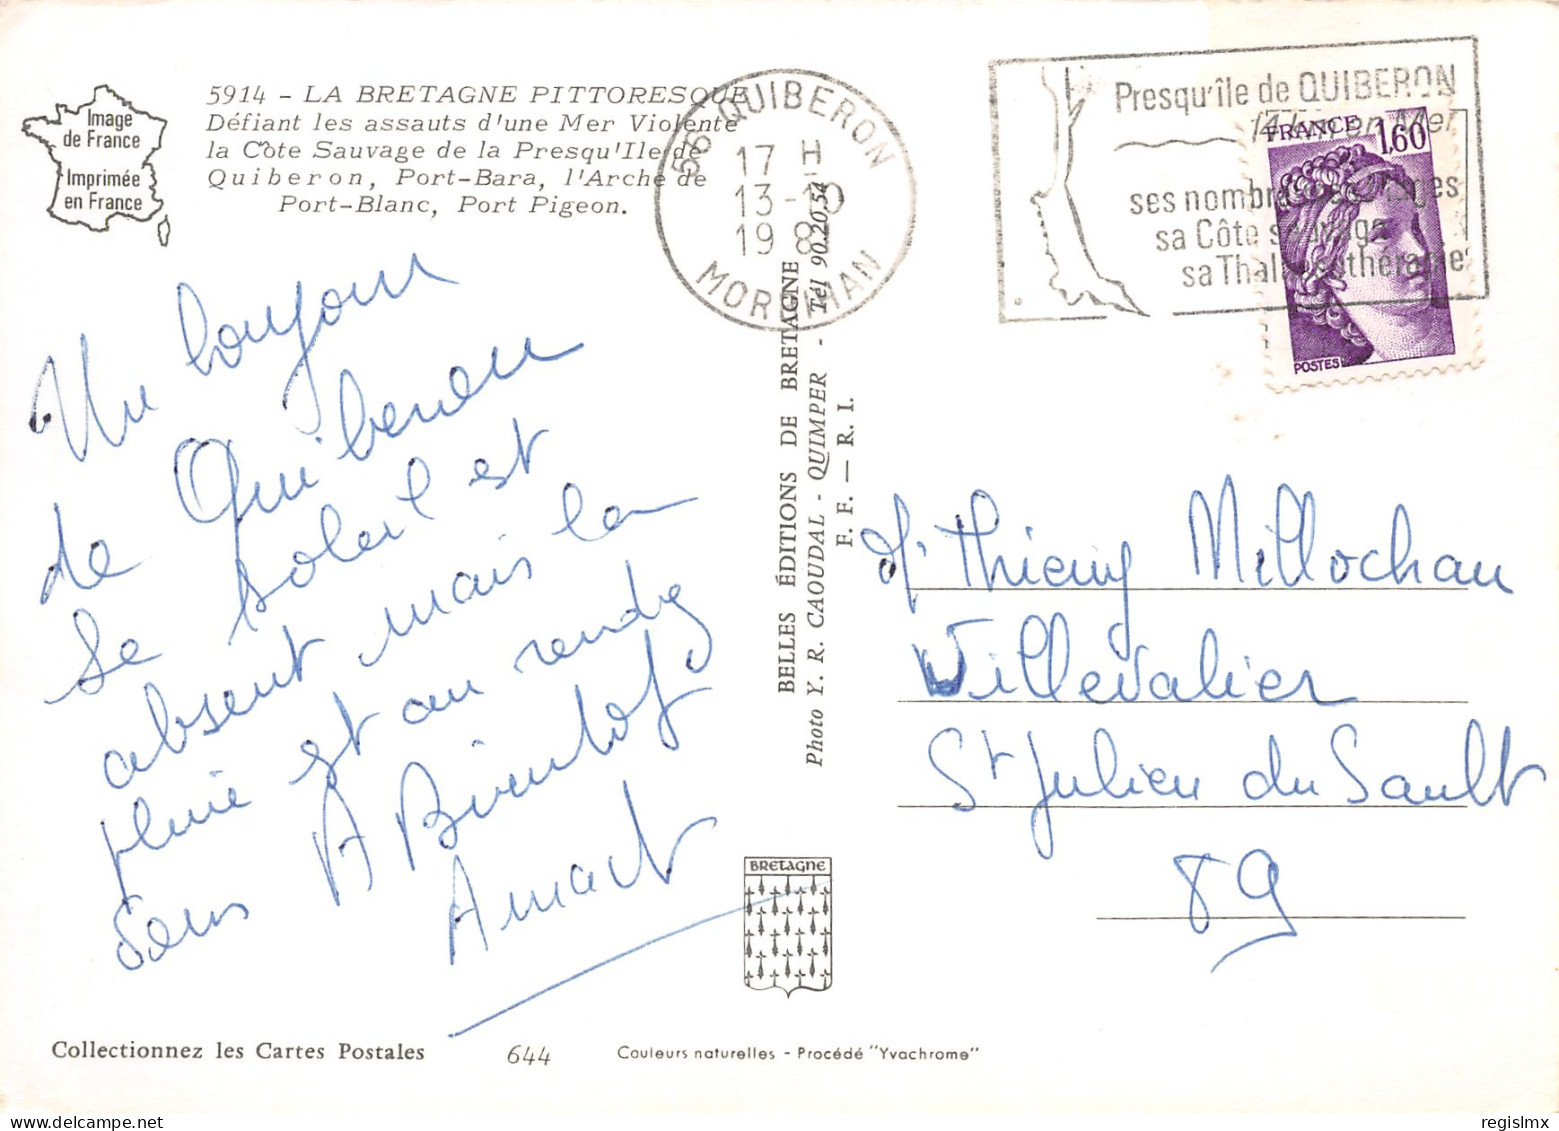 Image
de France
Imprimée
en France
5914 - LA BRETAGNE PITTORESQUE
Défiant les assauts d'une Mer Violente
la Côte Sauvage de la Presqu'Ile de
Quiberon, Port-Bara, l'Arche de
Port-Blanc, Port Pigeon.
56 QUIBERON
17 H
13-10
19 8
MORBIHAN
Presqu'île de QUIBERON
ses nombreuses plages
sa Côte sauvage
sa Thalassothérapie
FRANCE 1,60
POSTES
Un bonjour
de Quiberon
Le soleil est
absent mais la
pluie est au rendez
vous A Bientôt
BELLES ÉDITIONS DE BRETAGNE
Photo Y. R. CAOUDAL - QUIMPER - Tél 90.20.54
F. F. — R. I.
Mr Thierry Millochau
Villevallier
St Julien du Sault
89
BRETAGNE
Collectionnez les Cartes Postales
644
Couleurs naturelles - Procédé "Yvachrome"
regislmx